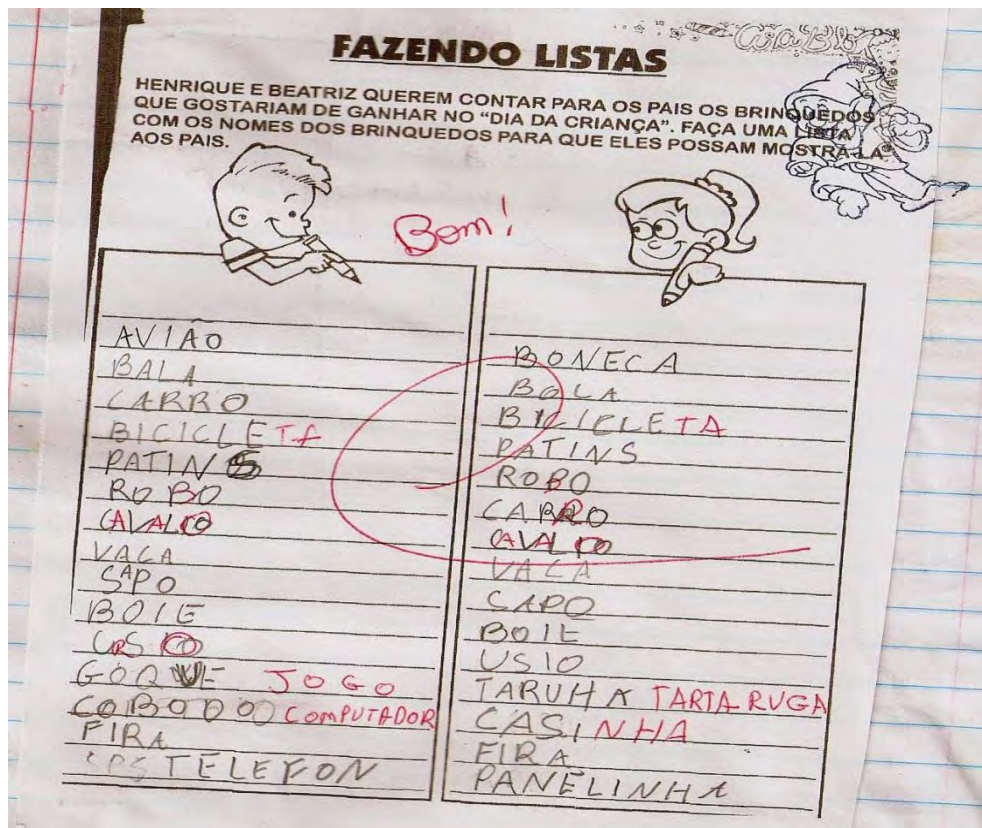 FAZENDO LISTAS
HENRIQUE E BEATRIZ QUEREM CONTAR PARA OS PAIS OS BRINQUEDOS
QUE GOSTARIAM DE GANHAR NO “DIA DA CRIANÇA”. FAÇA UMA LISTA
COM OS NOMES DOS BRINQUEDOS PARA QUE ELES POSSAM MOSTRÁ-LA
AOS PAIS.
Bom!
AVIÃO
BALA
CARRO
BICICLETA
PATINS
ROBO
CAVALO
VACA
SAPO
BOIE
URSO
GOQUE JOGO
COMPUTADOR
FIRA
TELEFON
BONECA
BOLA
BICICLETA
PATINS
ROBO
CARRO
CAVALO
VACA
CAPO
BOIE
USIO
TARUHA TARTARUGA
CASINHA
FIRA
PANELINHA